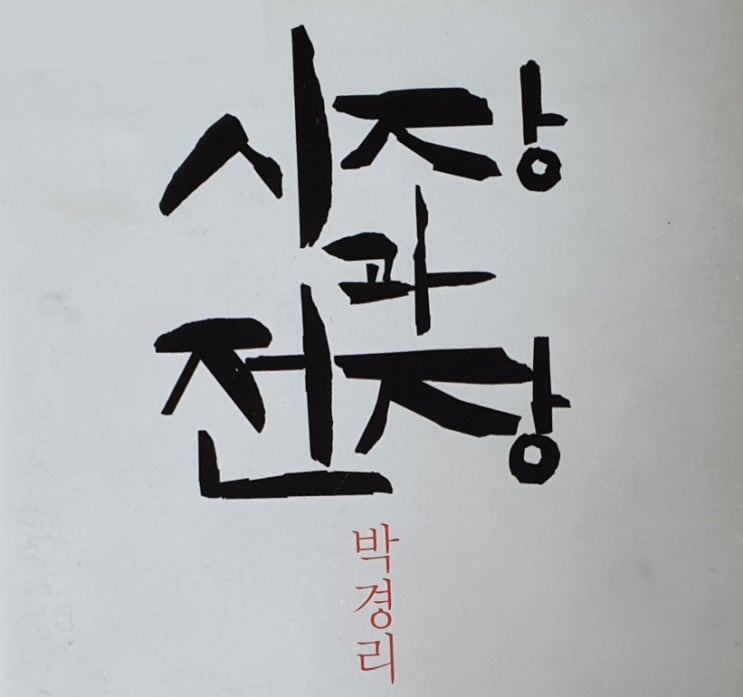 시장
과
전장
박경리